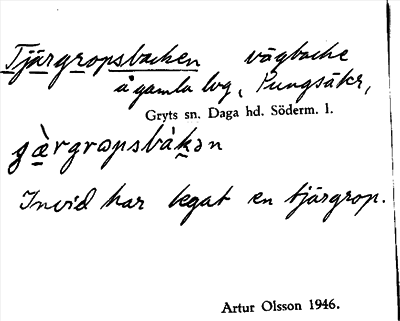 Tjärgropsbacken vägbacke
å gamla lvg, Pungsåkr,
Gryts sn. Daga hd. Söderm. l.
gärgrɷpsbàkən
Invid har legat en tjärgrop.
Artur Olsson 1946.